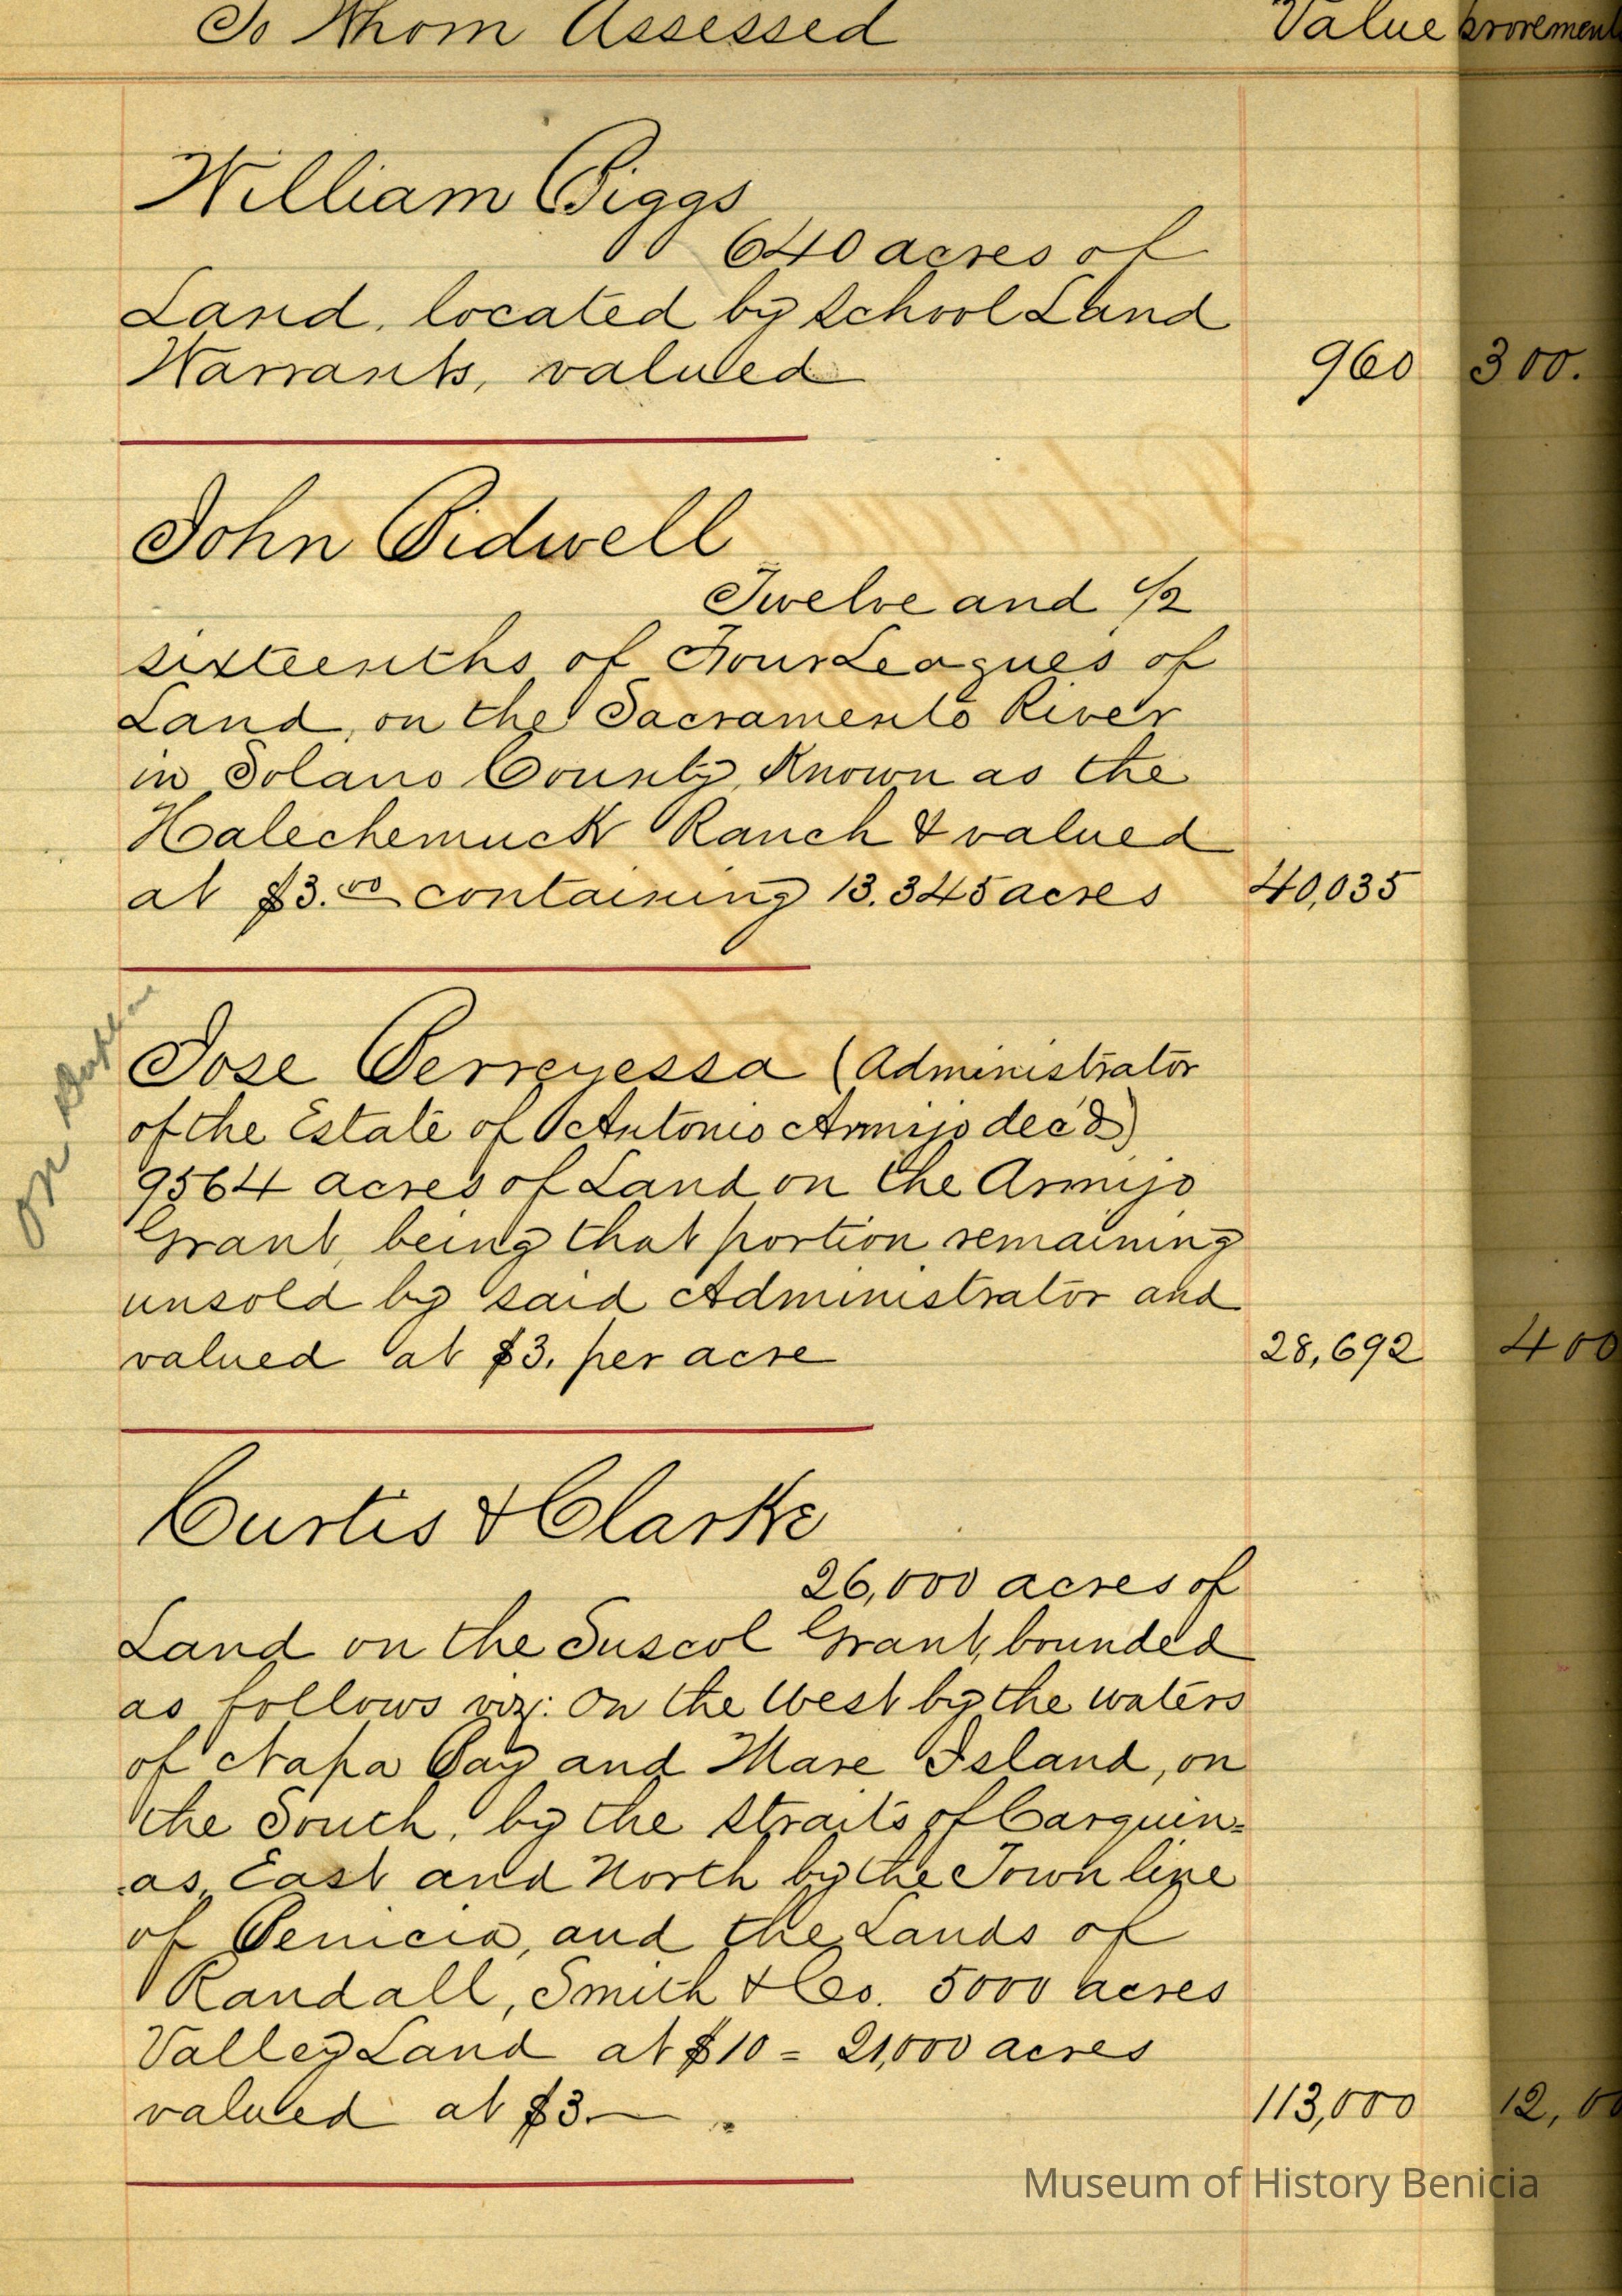 To Whom Assessed Value
William Biggs
640 acres of
Land, located by School Land
Warrants, valued 960 300.
John Bidwell
Twelve and 1/2
sixteenths of Four Leagues of
Land, on the Sacramento River
in Solano County, Known as the
Halechemuck Ranch & valued
at $3.00 containing 13.345 acres 40,035
Jose Berreyessa (Administrator
of the Estate of Antonio Armijo dec'd)
9564 acres of Land on the Armijo
Grant, being that portion remaining
unsold by said Administrator and
valued at $3. per acre 28,692 400
On
Curtis & Clarke
26,000 acres of
Land on the Suscol Grant, bounded
as follows viz: On the West by the waters
of Napa Bay and Mare Island, on
the South, by the Straits of Carquin=
as, East and North by the Town line
of Benicia, and the Lands of
Randall, Smith & Co. 5000 acres
Valley Land at $10 = 21,000 acres
valued at $3.— 113,000
Museum of History Benicia